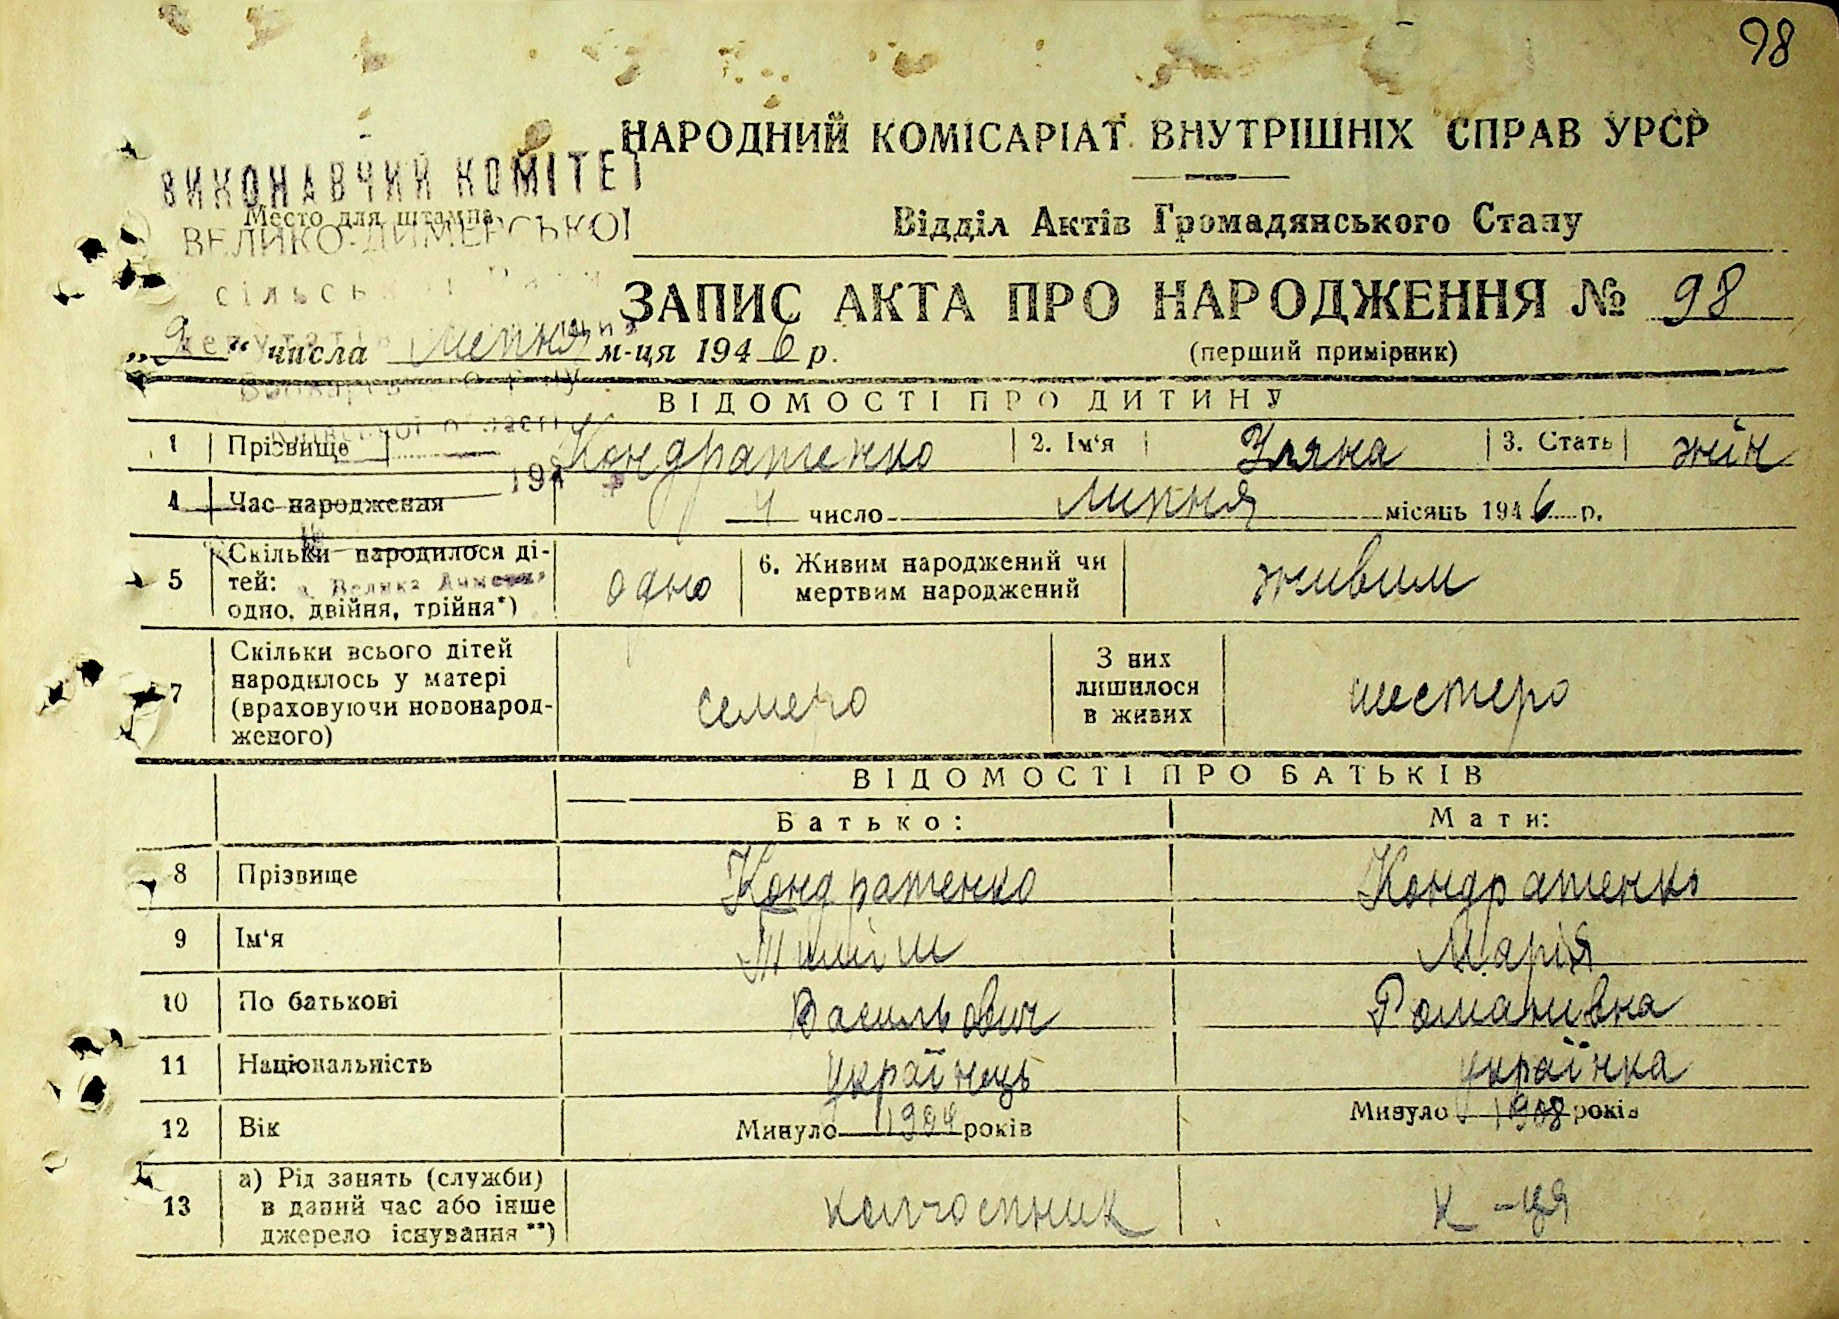 98
НАРОДНИЙ КОМІСАРІАТ ВНУТРІШНІХ СПРАВ УРСР
ВИКОНАВЧИЙ КОМІТЕТ
Место для штампа
ВЕЛИКО-ДИМЕРСЬКОЇ
Відділ Актів Громадянського Стану
ЗАПИС АКТА ПРО НАРОДЖЕННЯ № 98
„9“ числа липня м-ця 1946 р.
(перший примірник)
ВІДОМОСТІ ПРО ДИТИНУ
1 Прізвище Кондратенко 2. Ім‘я Уляна 3. Стать жін
194
4 Час народження 4 число липня місяць 1946 р.
5 Скільки народилося ді-
тей:
одно, двійня, трійня*)
одно
6. Живим народжений чи
мертвим народжений
живим
с. Велика Димерка
7 Скільки всього дітей
народилось у матері
(враховуючи новонарод-
женого)
семеро
З них
лишилося
в живих
шестеро
ВІДОМОСТІ ПРО БАТЬКІВ
Батько: Мати:
8 Прізвище Кондратенко Кондратенко
9 Ім‘я Марія
10 По батькові Васильович Романівна
11 Національність українець українка
12 Вік Минуло 1904 років Минуло 1908 років
13 а) Рід занять (служби)
в даний час або інше
джерело існування **)
колгоспник к-ця